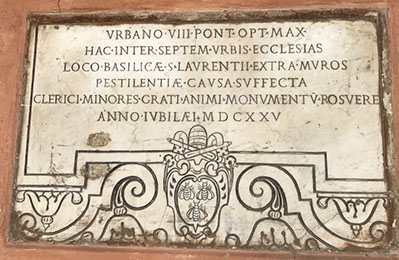 VRBANO·VIII·PONT·OPT·MAX·
HAC·INTER·SEPTEM·VRBIS·ECCLESIAS
LOCO·BASILICÆ·S·LAVRENTII·EXTRA·MVROS
PESTILENTIÆ·CAVSA·SVFFECTA
CLERICI·MINORES·GRATI·ANIMI·MONVMENTV̄·POSVERE
ANNO·IVBILÆI·MDCXXV